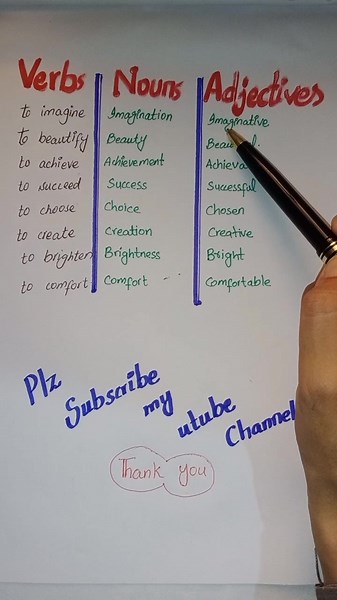 Verbs Nouns Adjectives
to imagine Imagination Imaginative
to beautify Beauty
to achieve Achievement
to succeed Success Sucessful
to choose Choice Chosen
to create Creation Creative
to brighten Brightness Bright
to comfort Comfort Comfortable
Plz Subscribe my utube Channel
Thank you